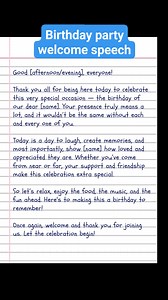 Birthday party
welcome speech
Good [afternoon/evening], everyone!
Thank you all for being here today to celebrate
this very special occasion — the birthday of
our dear [name]. Your presence truly means a
lot, and it wouldn't be the same without each
and every one of you.
Today is a day to laugh, create memories, and
most importantly, show [name] how loved and
appreciated they are. Whether you've come
from near or far, your support and friendship
make this celebration extra special.
So let's relax, enjoy the food, the music, and the
fun ahead. Here's to making this a birthday to
remember!
Once again, welcome and thank you for joining
us. Let the celebration begin!